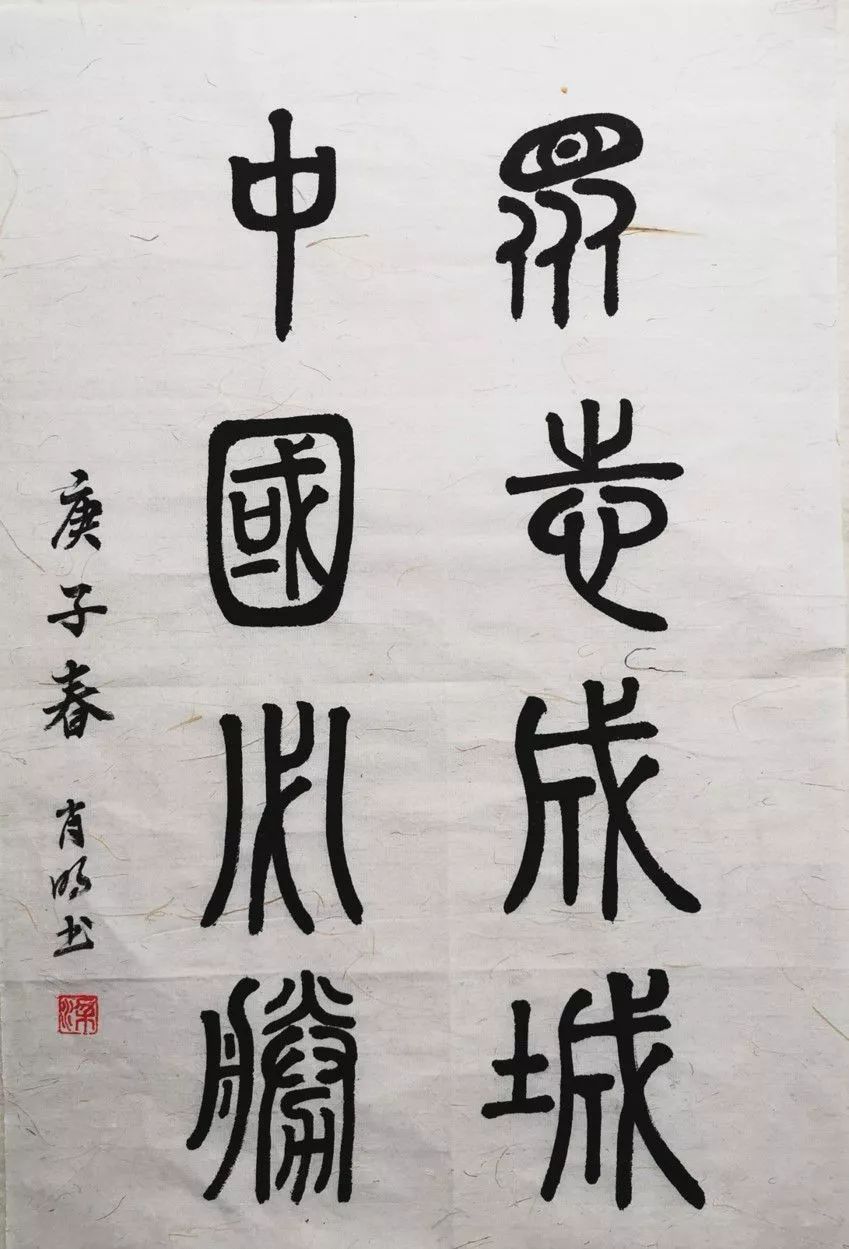 眾志成城
中國必勝
庚子春 肖明书